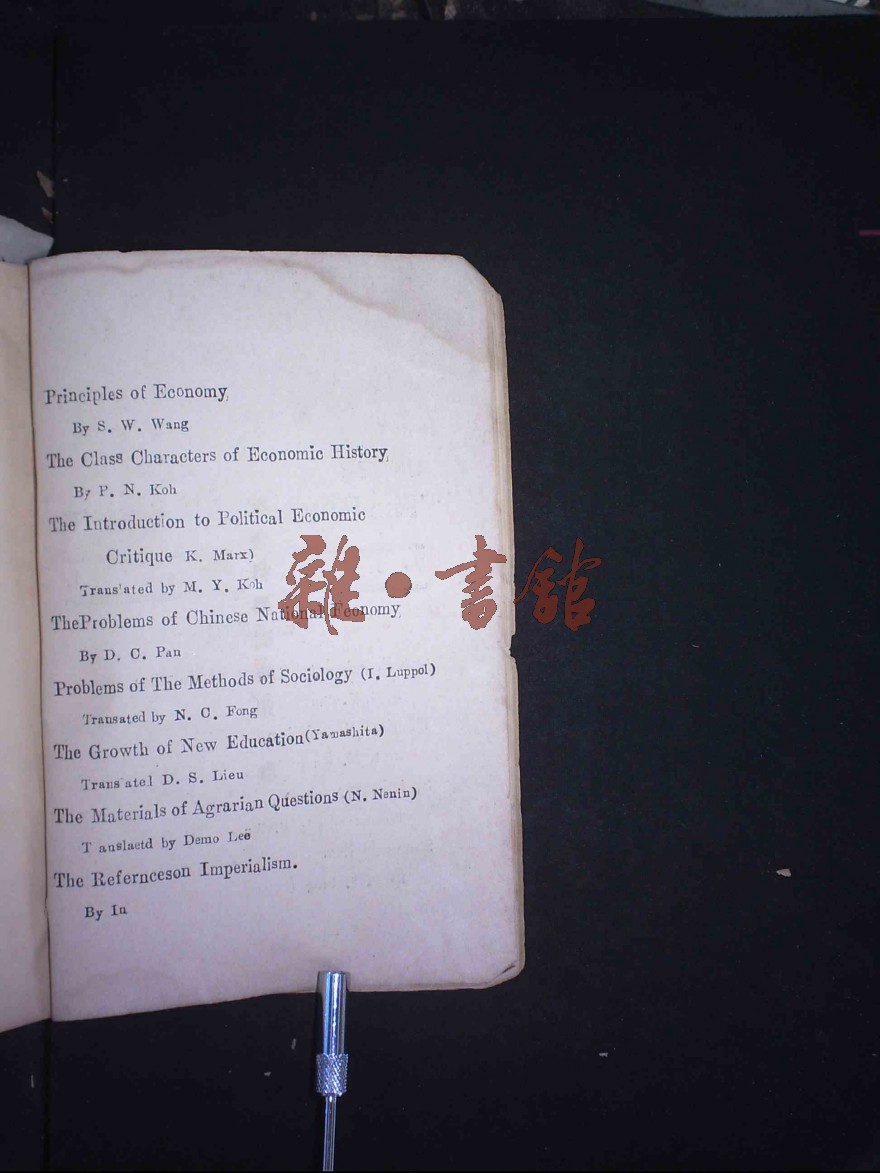 Principles of Economy,
By S. W. Wang
The Class Characters of Economic History,
By P. N. Koh
The Introduction to Political Economic
Critique K. Marx)
Translated by M. Y. Koh
TheProblems of Chinese National Economy,
By D. C. Pan
Problems of The Methods of Sociology (I. Luppol)
Transated by N. C. Fong
The Growth of New Education(Yamashita)
Trans ated D. S. Lieu
The Materials of Agrarian Questions (N. Nenin)
T anslaetd by Demo Lee
The Refernceson Imperialism.
By In
雜•書館